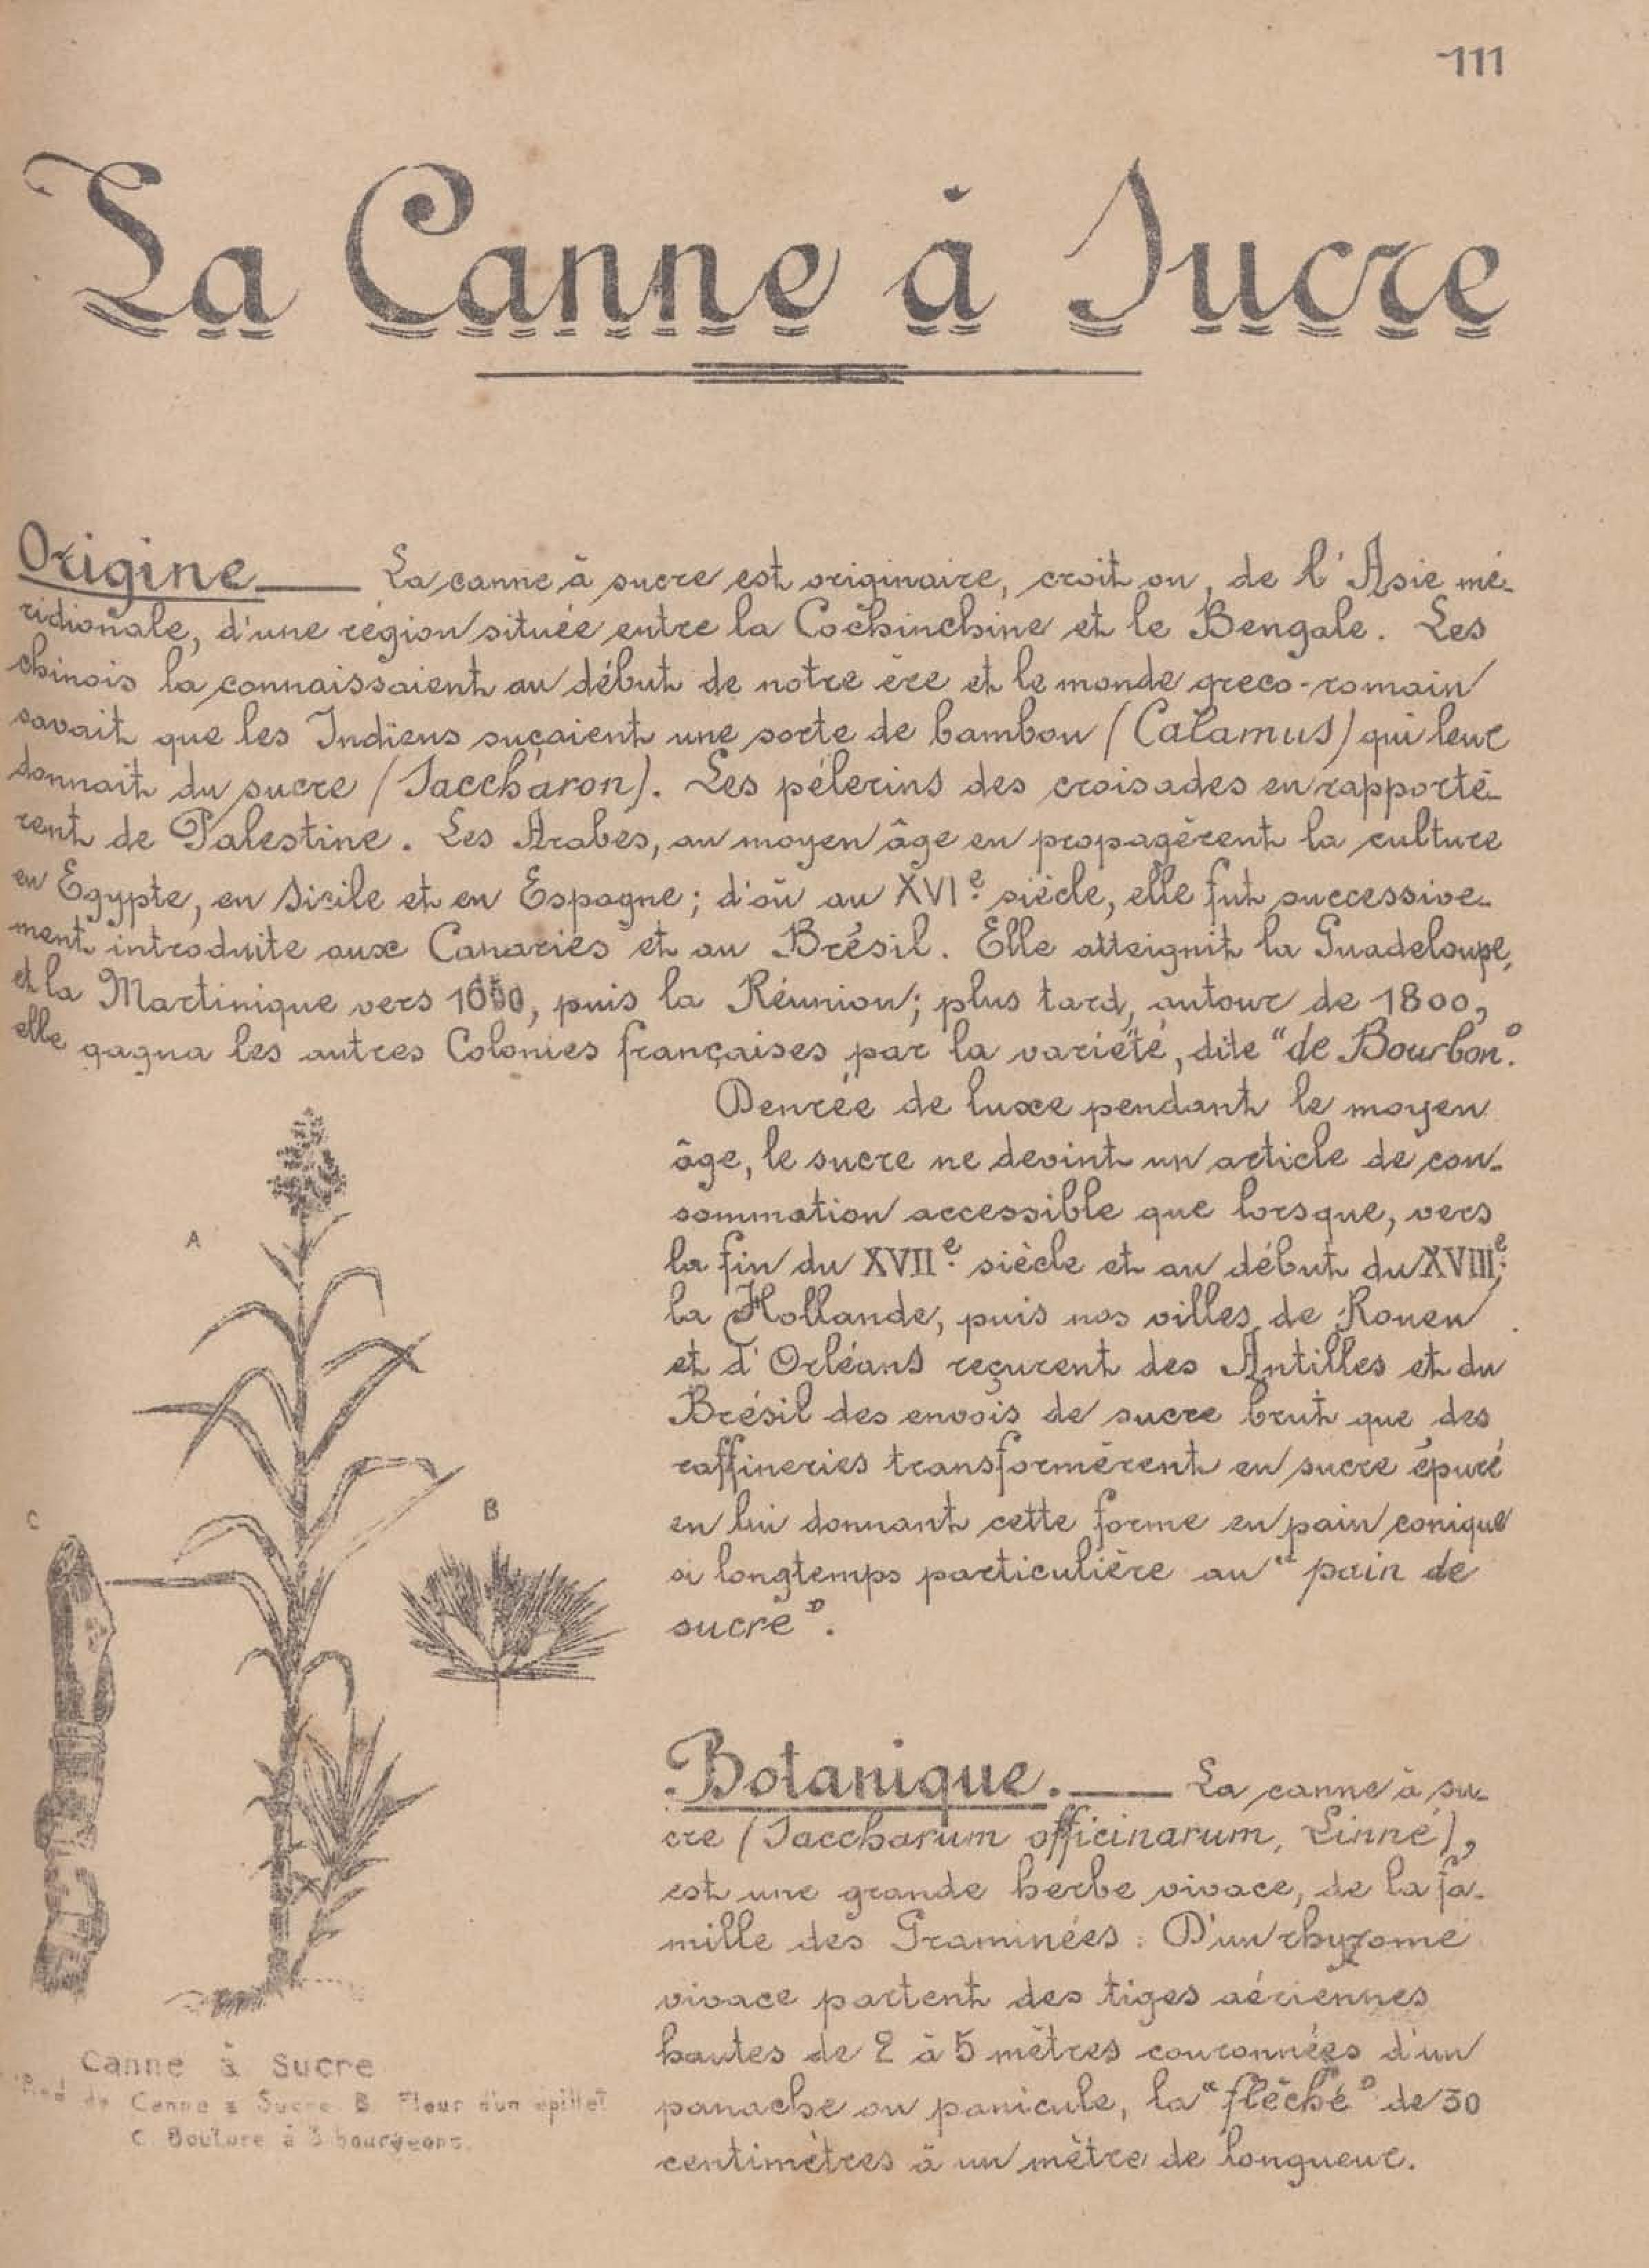 -111
La Canne à Sucre
Origine — La canne à sucre est originaire, croit on, de l'Asie mé-
ridionale, d'une région située entre la Cochinchine et le Bengale. Les
chinois la connaissaient au début de notre ère et le monde greco-romain
savait que les Indiens suçaient une sorte de bambou (Calamus) qui leur
donnait du sucre (Saccharon). Les pélerins des croisades en rapportè-
rent de Palestine. Les Arabes, au moyen âge en propagèrent la culture
en Egypte, en Sicile et en Espagne; d'où au XVIe siècle, elle fut successive-
ment introduite aux Canaries et au Brésil. Elle atteignit la Guadeloupe,
et la Martinique vers 1650, puis la Réunion; plus tard, autour de 1800,
elle gagna les autres Colonies françaises par la variété, dite "de Bourbon".
Denrée de luxe pendant le moyen
âge, le sucre ne devint un article de con-
sommation accessible que lorsque, vers
la fin du XVIIe siècle et au début du XVIIIe;
la Hollande, puis nos villes de Rouen
et d'Orléans reçurent des Antilles et du
Brésil des envois de sucre brut que des
raffineries transformèrent en sucre épuré
en lui donnant cette forme en pain conique
si longtemps particulière au "pain de
sucre".
Botanique. — La canne à su-
cre (Saccharum officinarum, Linné),
est une grande herbe vivace, de la fa-
mille des Graminées : D'un rhyzome
vivace partent des tiges aériennes
hautes de 2 à 5 mètres couronnées d'un
panache ou panicule, la "flèche" de 30
centimètres à un mètre de longueur.
A
B
C
Canne à Sucre
Pied de Canne à Sucre B. Fleur d'un épillet
C. Bouture à 3 bourgeons.